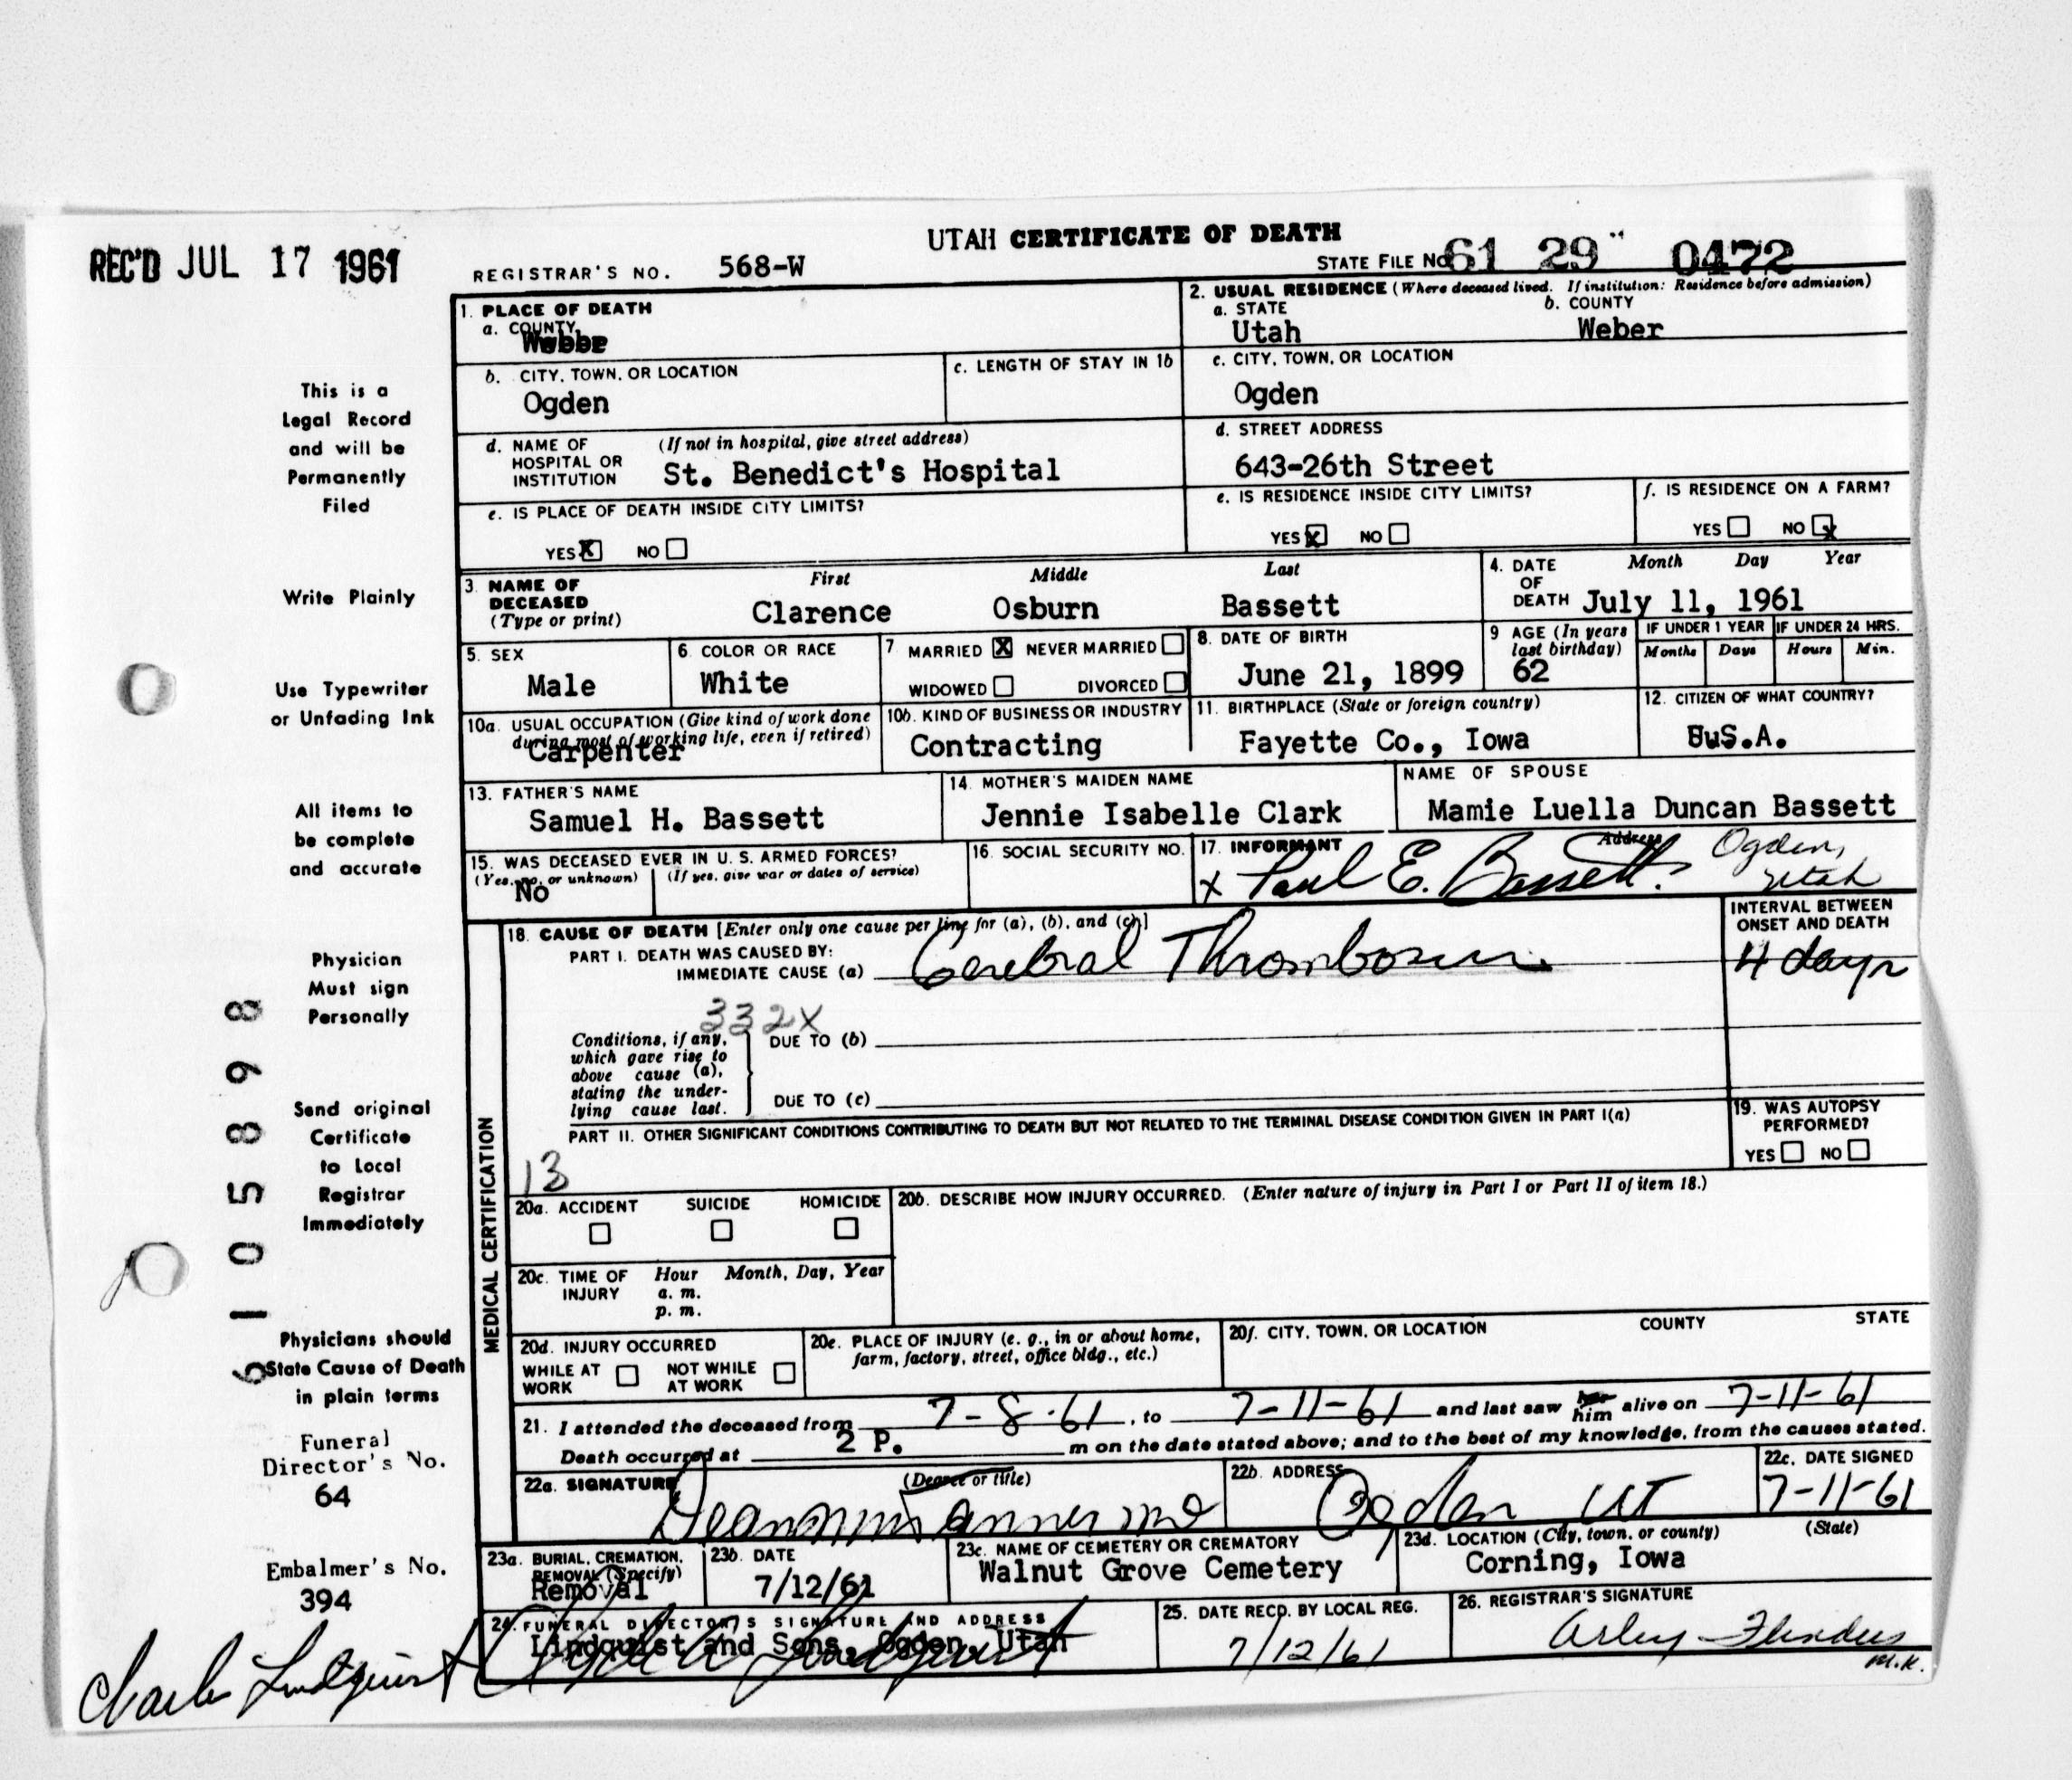 UTAH CERTIFICATE OF DEATH
REC'D JUL 17 1961
REGISTRAR'S NO. 568-W
STATE FILE NO. 61 29 0472
1. PLACE OF DEATH
a. COUNTY
2. USUAL RESIDENCE (Where deceased lived. If institution: Residence before admission)
a. STATE b. COUNTY
Utah Weber
b. CITY, TOWN, OR LOCATION
Ogden
c. LENGTH OF STAY IN 1b
c. CITY, TOWN, OR LOCATION
Ogden
d. NAME OF HOSPITAL OR INSTITUTION (If not in hospital, give street address)
St. Benedict's Hospital
d. STREET ADDRESS
643-26th Street
e. IS PLACE OF DEATH INSIDE CITY LIMITS?
YES X NO
e. IS RESIDENCE INSIDE CITY LIMITS?
YES X NO
f. IS RESIDENCE ON A FARM?
YES NO X
3. NAME OF DECEASED (Type or print)
First Middle Last
Clarence Osburn Bassett
4. DATE OF DEATH Month Day Year
July 11, 1961
5. SEX
Male
6. COLOR OR RACE
White
7. MARRIED X NEVER MARRIED
WIDOWED DIVORCED
8. DATE OF BIRTH
June 21, 1899
9 AGE (In years last birthday)
62
IF UNDER 1 YEAR IF UNDER 24 HRS.
Months Days Hours Min.
10a. USUAL OCCUPATION (Give kind of work done during most of working life, even if retired)
Carpenter
10b. KIND OF BUSINESS OR INDUSTRY
Contracting
11. BIRTHPLACE (State or foreign country)
Fayette Co., Iowa
12. CITIZEN OF WHAT COUNTRY?
U.S.A.
13. FATHER'S NAME
Samuel H. Bassett
14. MOTHER'S MAIDEN NAME
Jennie Isabelle Clark
NAME OF SPOUSE
Mamie Luella Duncan Bassett
15. WAS DECEASED EVER IN U. S. ARMED FORCES?
(Yes, no, or unknown) (If yes, give war or dates of service)
No
16. SOCIAL SECURITY NO.
17. INFORMANT Address
x Paul E. Bassett. Ogden, Utah
MEDICAL CERTIFICATION
18. CAUSE OF DEATH [Enter only one cause per line for (a), (b), and (c).]
PART I. DEATH WAS CAUSED BY:
IMMEDIATE CAUSE (a) Cerebral Thrombosis
INTERVAL BETWEEN ONSET AND DEATH
4 days
332X
Conditions, if any, which gave rise to above cause (a), stating the underlying cause last.
DUE TO (b)
DUE TO (c)
PART II. OTHER SIGNIFICANT CONDITIONS CONTRIBUTING TO DEATH BUT NOT RELATED TO THE TERMINAL DISEASE CONDITION GIVEN IN PART I(a)
13
19. WAS AUTOPSY PERFORMED?
YES NO
20a. ACCIDENT SUICIDE HOMICIDE
20b. DESCRIBE HOW INJURY OCCURRED. (Enter nature of injury in Part I or Part II of item 18.)
20c. TIME OF INJURY Hour Month, Day, Year
a. m.
p. m.
20d. INJURY OCCURRED
WHILE AT WORK NOT WHILE AT WORK
20e. PLACE OF INJURY (e. g., in or about home, farm, factory, street, office bldg., etc.)
20f. CITY, TOWN, OR LOCATION COUNTY STATE
21. I attended the deceased from 7-8-61, to 7-11-61 and last saw her him alive on 7-11-61
Death occurred at 2 P. m on the date stated above; and to the best of my knowledge, from the causes stated.
22a. SIGNATURE (Degree or title)
Tanner MD
22b. ADDRESS
Ogden UT
22c. DATE SIGNED
7-11-61
23a. BURIAL, CREMATION, REMOVAL (Specify)
Removal
23b. DATE
7/12/61
23c. NAME OF CEMETERY OR CREMATORY
Walnut Grove Cemetery
23d. LOCATION (City, town, or county) (State)
Corning, Iowa
24. FUNERAL DIRECTOR'S SIGNATURE AND ADDRESS
Lindquist and Sons, Ogden, Utah
Charles Lindquist
25. DATE RECD. BY LOCAL REG.
7/12/61
26. REGISTRAR'S SIGNATURE
Arley Flinders
M.K.
This is a
Legal Record
and will be
Permanently
Filed
Write Plainly
Use Typewriter
or Unfading Ink
All items to
be complete
and accurate
Physician
Must sign
Personally
Send original
Certificate
to Local
Registrar
Immediately
Physicians should
State Cause of Death
in plain terms
Funeral
Director's No.
64
Embalmer's No.
394
61058898